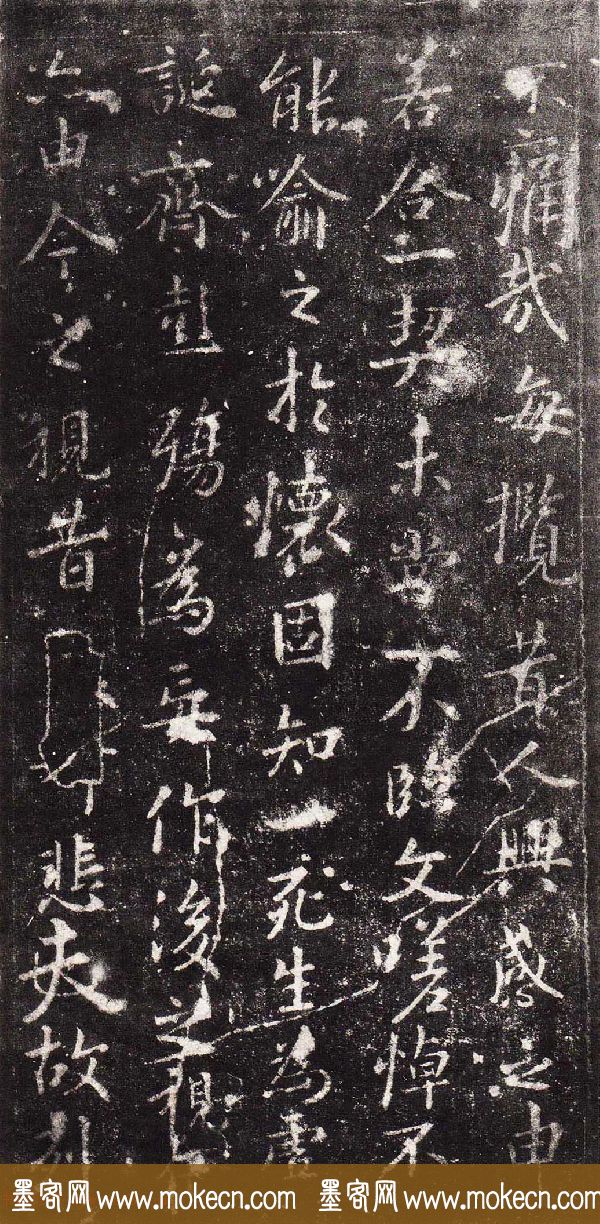 不痛哉每攬昔人興感之由
若合一契未嘗不臨文嗟悼不
能喻之於懷固知一死生為虛
誕齊彭殤為妄作後之視今
亦由今之視昔悲夫故列
墨客网 www.mokecn.com 墨客网 www.mokecn.com